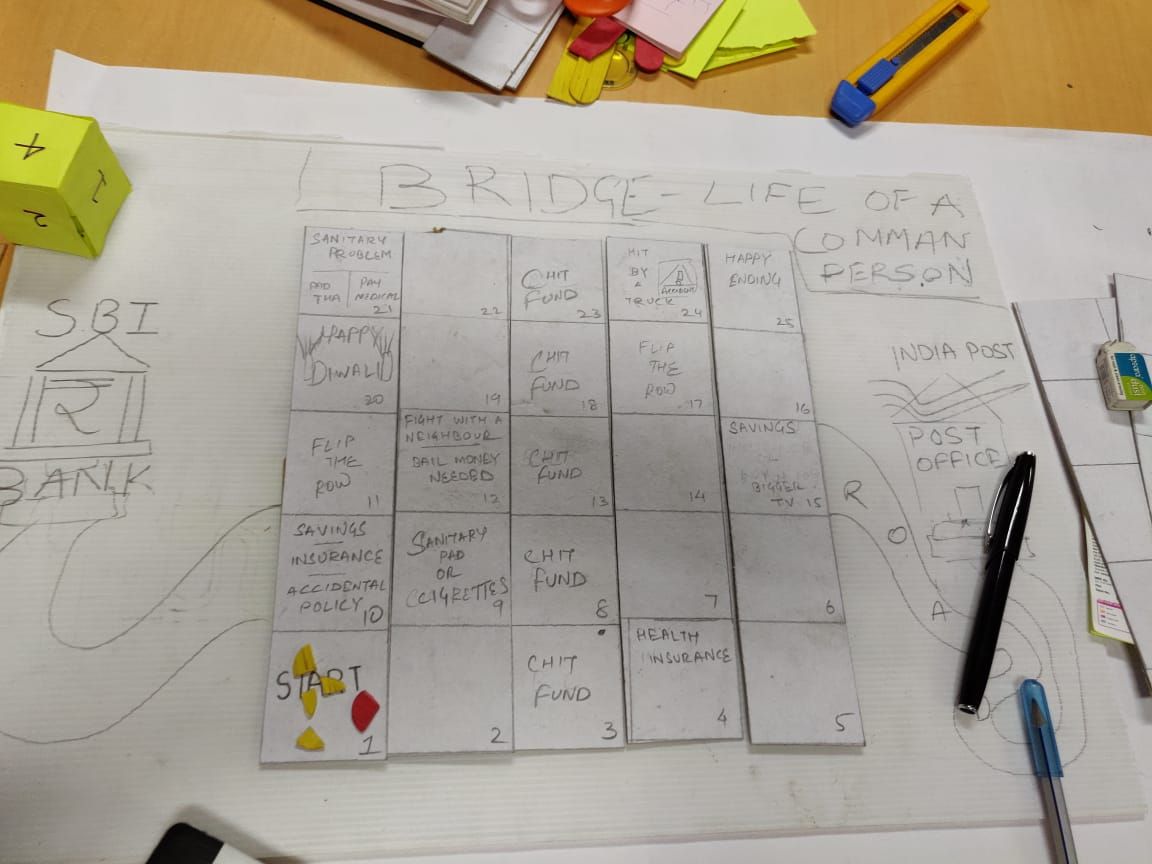 BRIDGE - LIFE OF A
COMMAN
PERSON
4
1
2
SBI
₹
BANK
SANITARY
PROBLEM
PAD
THA
PAY
MEDICAL
21
22
CHIT
FUND
23
HIT
BY
A
TRUCK
ACCIDENT
24
HAPPY
ENDING
25
HAPPY
DIWALI
20
19
CHIT
FUND
18
FLIP
THE
ROW
17
16
FLIP
THE
ROW
11
FIGHT WITH A
NEIGHBOUR
BAIL MONEY
NEEDED
12
CHIT
FUND
13
14
SAVINGS
BIGGER
TV 15
SAVINGS
INSURANCE
ACCIDENTAL
POLICY 10
SANITARY
PAD
OR
CCIGRETTES
9
CHIT
FUND
8
7
6
START
1
2
CHIT
FUND
3
HEALTH
INSURANCE
4
5
INDIA POST
POST
OFFICE
R
O
A